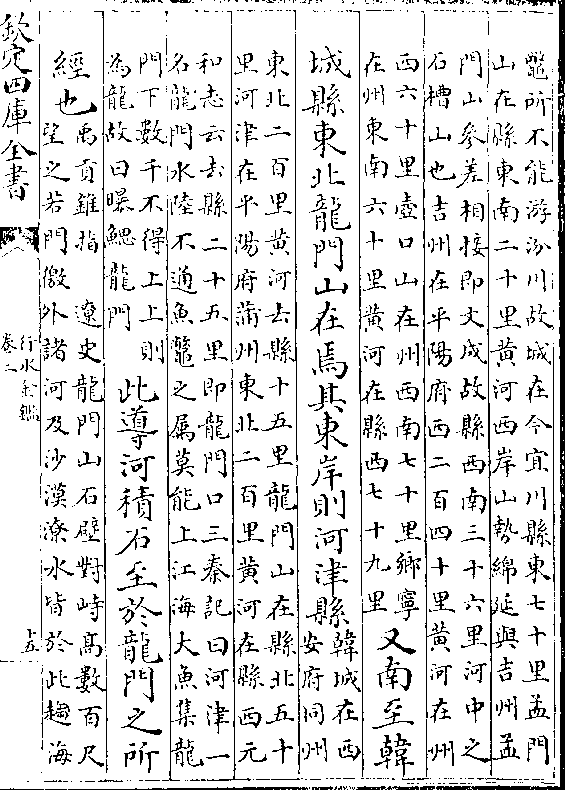 鼈所不能游汾川故城在今宜川縣東七十里孟門
山在縣東南二十里黄河西岸山勢綿延與吉州孟
門山參差相接即文成故縣西南三十六里河中之
石槽山也吉州在平陽府西二百四十里黄河在州
西六十里壺口山在州西南七十里鄉寧
在州東南六十里黄河在縣西七十九里
又南至韓
城縣東北龍門山在焉其東岸則河津縣
韓城在西
安府同州
東北二百里黄河去縣十五里龍門山在縣北五十
里河津在平陽府蒲州東北二百里黄河在縣西元
和志云去縣二十五里即龍門口三秦記曰河津一
名龍門水陸不通魚鼈之属莫能上江海大魚集龍
門下數千不得上上則
為龍故曰曝鰓龍門
此導河積石至於龍門之所
經也
禹貢錐指 遼史龍門山石壁對峙高數百尺
望之若門徼外諸河及沙漠潦水皆於此趨海
欽定四庫全書
行水金鑑
卷二
十五